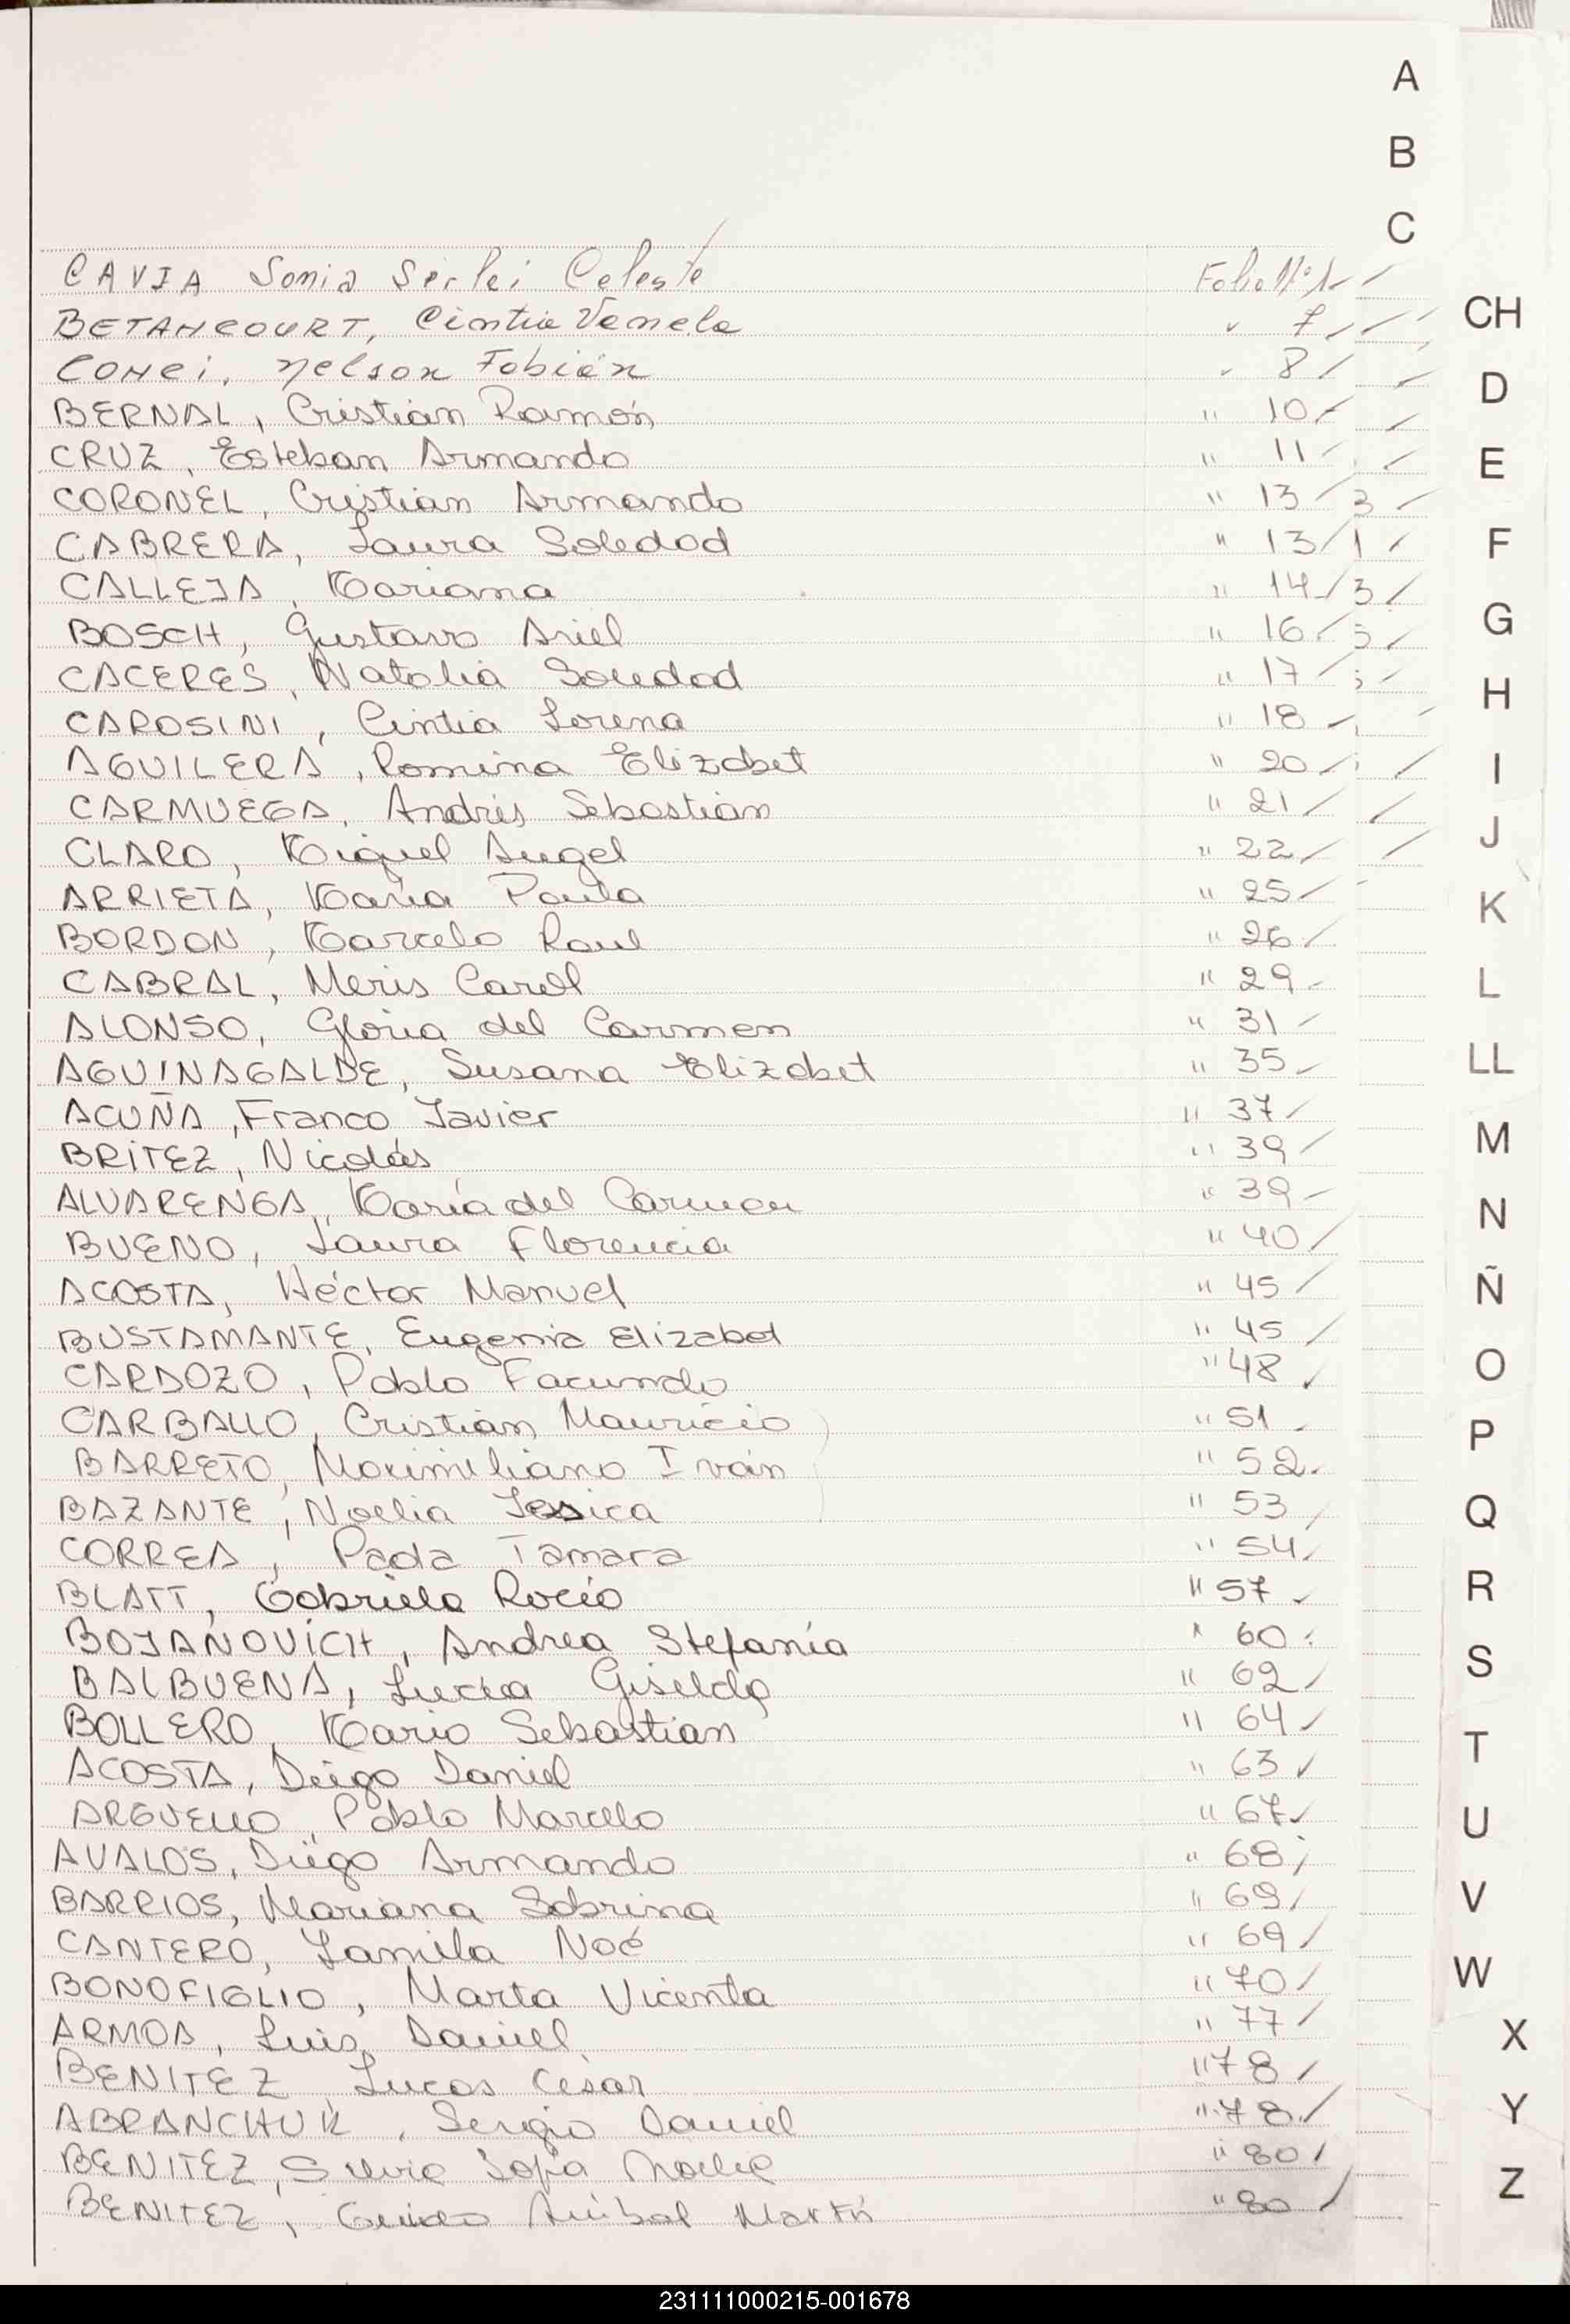 A
B
C
CAVIA Sonia Sirlei Celeste Folio Nº 1
BETANCOURT, Cintia Vanela " 7
CH
COHCi, Nelson Fabián " 8
D
BERNAL, Cristian Ramón " 10
CRUZ, Esteban Armando " 11
E
CORONEL, Cristian Armando " 13
CABRERA, Laura Soledad " 13
F
CALLEJA, Mariana " 14
BOSCH, Gustavo Ariel " 16
G
CACERES, Natalia Soledad " 17
H
CAROSINI, Cintia Lorena " 18
AGUILERA, Romina Elizabet " 20
I
CARMUEGA, Andrés Sebastián " 21
J
CLARO, Miguel Angel " 22
ARRIETA, María Paula " 25
K
BORDON, Marcelo Raul " 26
CABRAL, Meris Carol " 29
L
ALONSO, Gloria del Carmen " 31
AGUINAGALDE, Susana Elizabet " 35
LL
ACUÑA, Franco Javier " 37
BRITEZ, Nicolás " 39
M
ALVARENGA, María del Carmen " 39
N
BUENO, Laura Florencia " 40
ACOSTA, Héctor Manuel " 45
Ñ
BUSTAMANTE, Eugenia Elizabet " 45
CARDOZO, Pablo Facundo " 48
O
CARBALLO, Cristian Mauricio " 51
P
BARRETO, Maximiliano Iván " 52
BAZANTE, Noelia Jesica " 53
Q
CORREA, Paola Tamara " 54
BLATT, Gabriela Rocío " 57
R
BOJANOVICH, Andrea Stefanía " 60
S
BALBUENA, Lucía Giselda " 62
BOLLERO, Mario Sebastian " 64
T
ACOSTA, Diego Daniel " 63
ARGUELLO, Pablo Marcelo " 67
U
AVALOS, Diego Armando " 68
BARRIOS, Mariana Sabrina " 69
V
CANTERO, Yamila Noé " 69
BONOFIGLIO, Marta Vicenta " 70
W
ARMOA, Luis Daniel " 77
X
BENITEZ, Lucas César " 78
ABRANCHUK, Sergio Daniel " 78
Y
BENITEZ, Silvia Sofía Noelia " 80
BENITEZ, Guido Anibal Martín " 80
Z
231111000215-001678